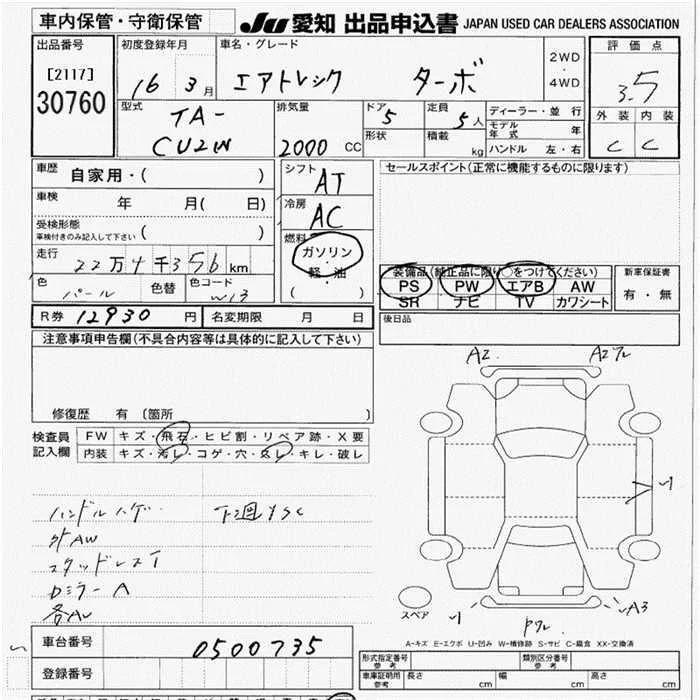 車内保管・守衛保管
JU 愛知 出品申込書 JAPAN USED CAR DEALERS ASSOCIATION
出品番号
[2117]
30760
初度登録年月
16 年 3 月
車名・グレード
エアトレック ターボ
2WD
・
4WD
評価点
3.5
外装 内装
C C
型式
TA-
CU2W
排気量
2000 CC
ドア
5
定員
5 人
形状
積載
kg
ディーラー・並行
モデル年式 年
ハンドル 左・右
車歴
自家用・( )
車検
年 月( 日)
受検形態
車検付きのみ記入して下さい( )
走行
22万4千356 km
色
パール
色替
色コード
W13
シフト
AT
冷房
AC
燃料
ガソリン
軽・油
( )
セールスポイント(正常に機能するものに限ります)
装備品(純正品に限り○をつけてください)
PS PW エアB AW
SR ナビ TV カワシート
新車保証書
有・無
R券 12930 円
名変期限 月 日
後日品
注意事項申告欄(不具合内容等は具体的に記入して下さい)
修復歴 有 〔箇所 〕
検査員
記入欄
FW キズ・飛石・ヒビ割・リペア跡・X要
内装 キズ・汚レ・コゲ・穴・スレ・キレ・破レ
ハンドルハゲ
下廻りSC
外AW
スタッドレスT
Dミラー A
各AU
A2
A2ワレ
スペア
A3
Pワレ
A-キズ E-エクボ U-凹み W-補修跡 S-サビ C-腐食 XX-交換済
車台番号
0500735
登録番号
形式指定番号
参考
類別区分番号
参考
車庫証明用
参考
長さ cm
幅 cm
高さ cm